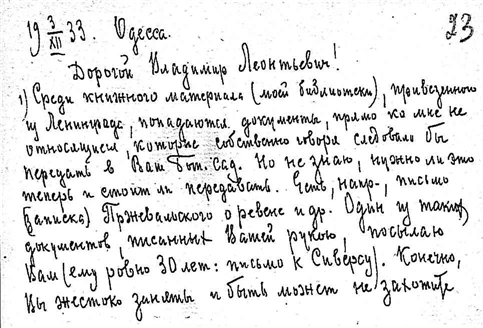 19 3/XII 33. Одесса. 23
Дорогой Владимир Леонтьевич!
1) Среди книжного материала (моей библиотеки), привезенного
из Ленинграда, попадаются документы, прямо ко мне не
относящиеся, которые собственно говоря следовало бы
передать в Ваш Бот. сад. Но не знаю, нужно ли это
теперь и стоит ли передавать. Есть, напр., письмо
(записка) Пржевальского о ревене и др. Один из таких
документов, писанных Вашей рукою, посылаю
Вам (ему ровно 30 лет: письмо к Сиверсу). Конечно,
Вы жестоко заняты и быть может не захотите